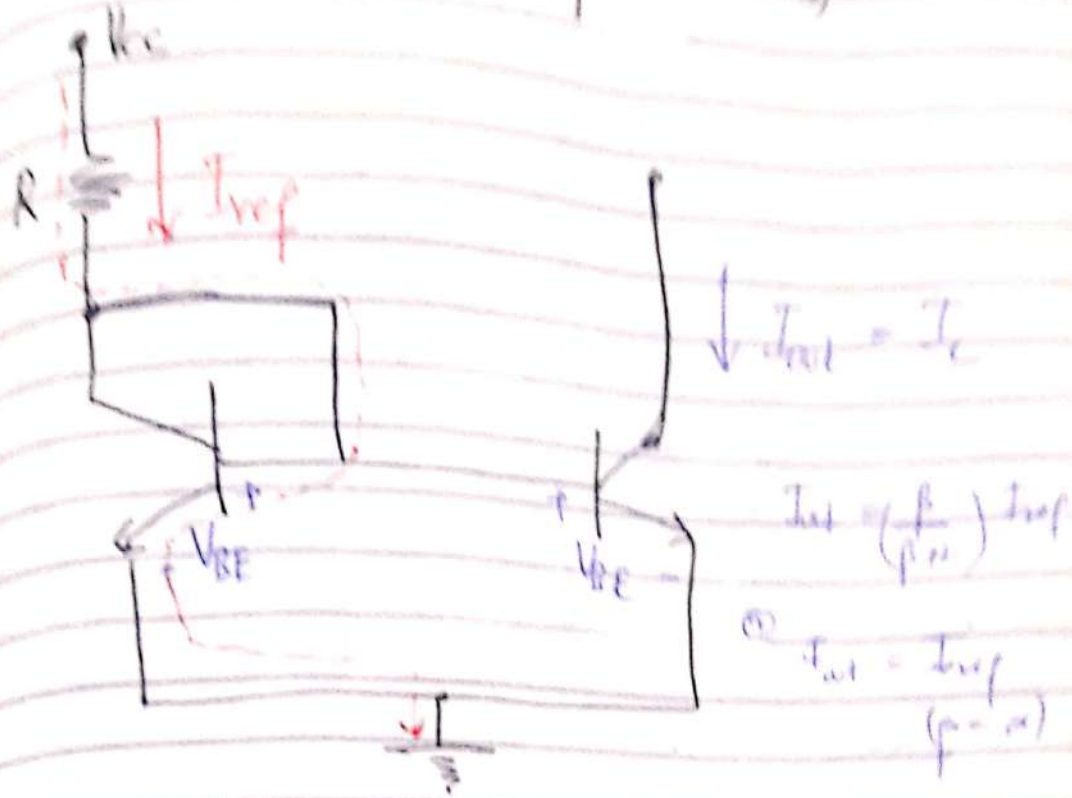 Vcc
R
I ref
I out = I c
V BE
V BE
I out = (β / β+2) I ref
I out = I ref